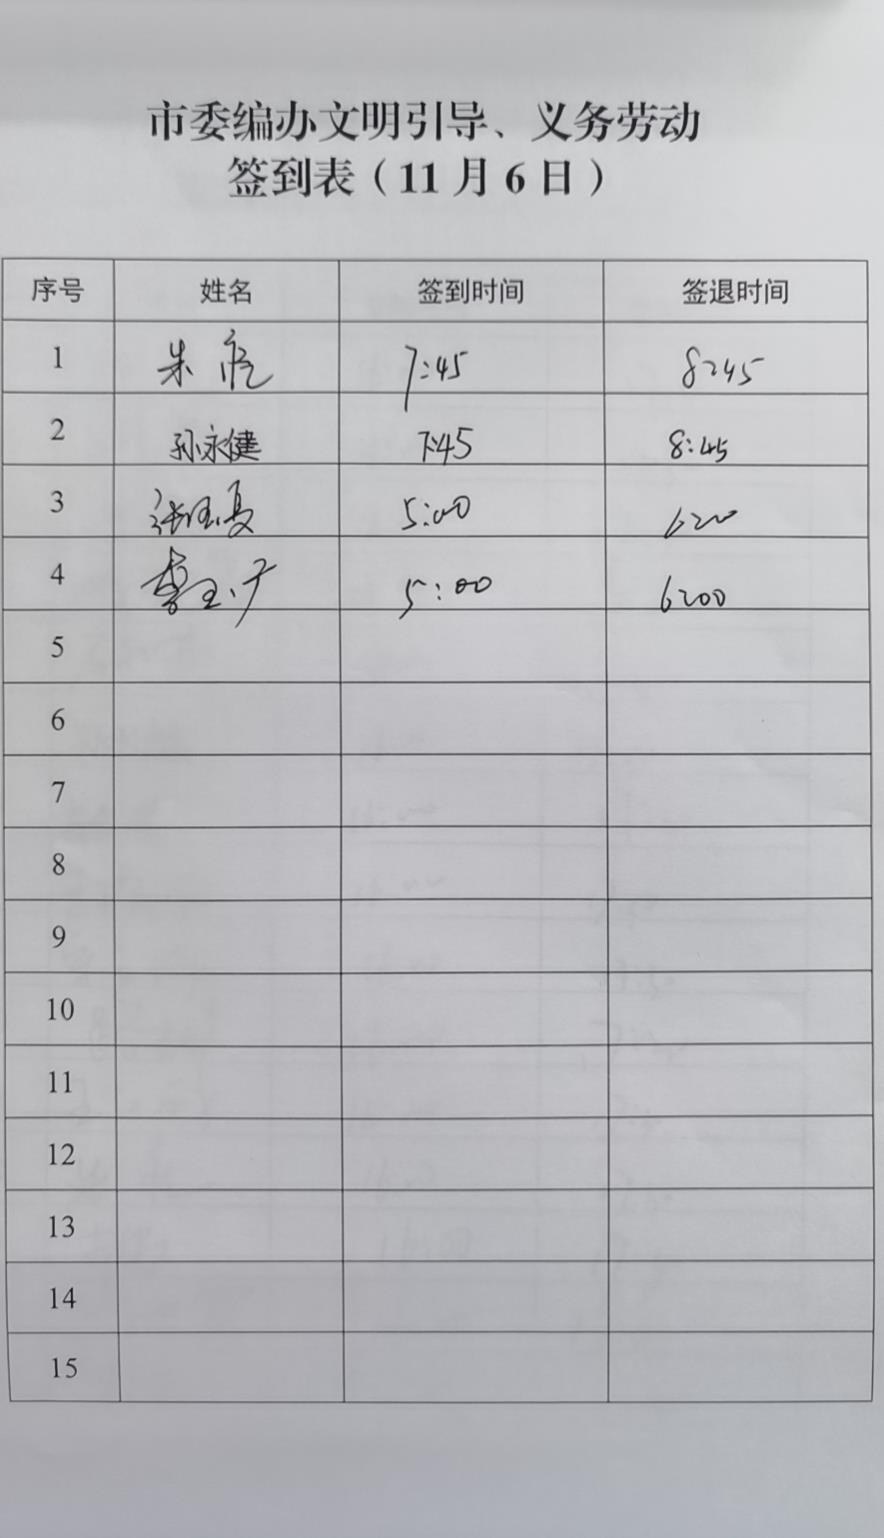 市委编办文明引导、义务劳动
签到表（11月6日）
序号 姓名 签到时间 签退时间
1 朱 7:45 8:45
2 孙永健 7:45 8:45
3 5:00 6:00
4 5:00 6:00
5
6
7
8
9
10
11
12
13
14
15